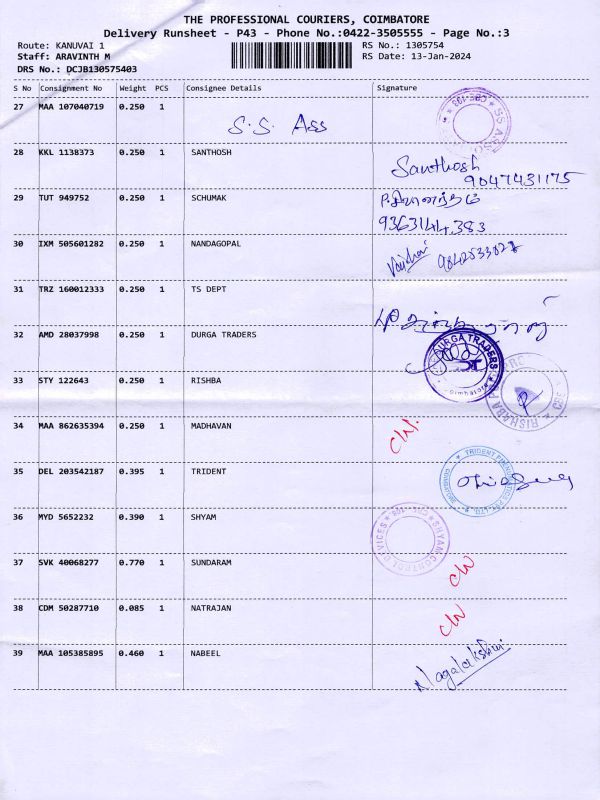 THE PROFESSIONAL COURIERS, COIMBATORE
Delivery Runsheet - P43 - Phone No.:0422-3505555 - Page No.:3
Route: KANUVAI 1
RS No.: 1305754
Staff: ARAVINTH M
RS Date: 13-Jan-2024
DRS No.: DCJB130575403
S No Consignment No Weight PCS Consignee Details Signature
27 MAA 107040719 0.250 1
S.S. Ass
28 KKL 1138373 0.250 1 SANTHOSH
Santhosh
9047431175
29 TUT 949752 0.250 1 SCHUMAK
9363144383
30 IXM 505601282 0.250 1 NANDAGOPAL
31 TRZ 160012333 0.250 1 TS DEPT
32 AMD 28037998 0.250 1 DURGA TRADERS
DURGA TRADERS
33 STY 122643 0.250 1 RISHBA
34 MAA 862635394 0.250 1 MADHAVAN
C/N.
35 DEL 203542187 0.395 1 TRIDENT
36 MYD 5652232 0.390 1 SHYAM
37 SVK 40068277 0.770 1 SUNDARAM
C/N
38 CDM 50287710 0.085 1 NATRAJAN
C/N
39 MAA 105385895 0.460 1 NABEEL
Nagalakshmi